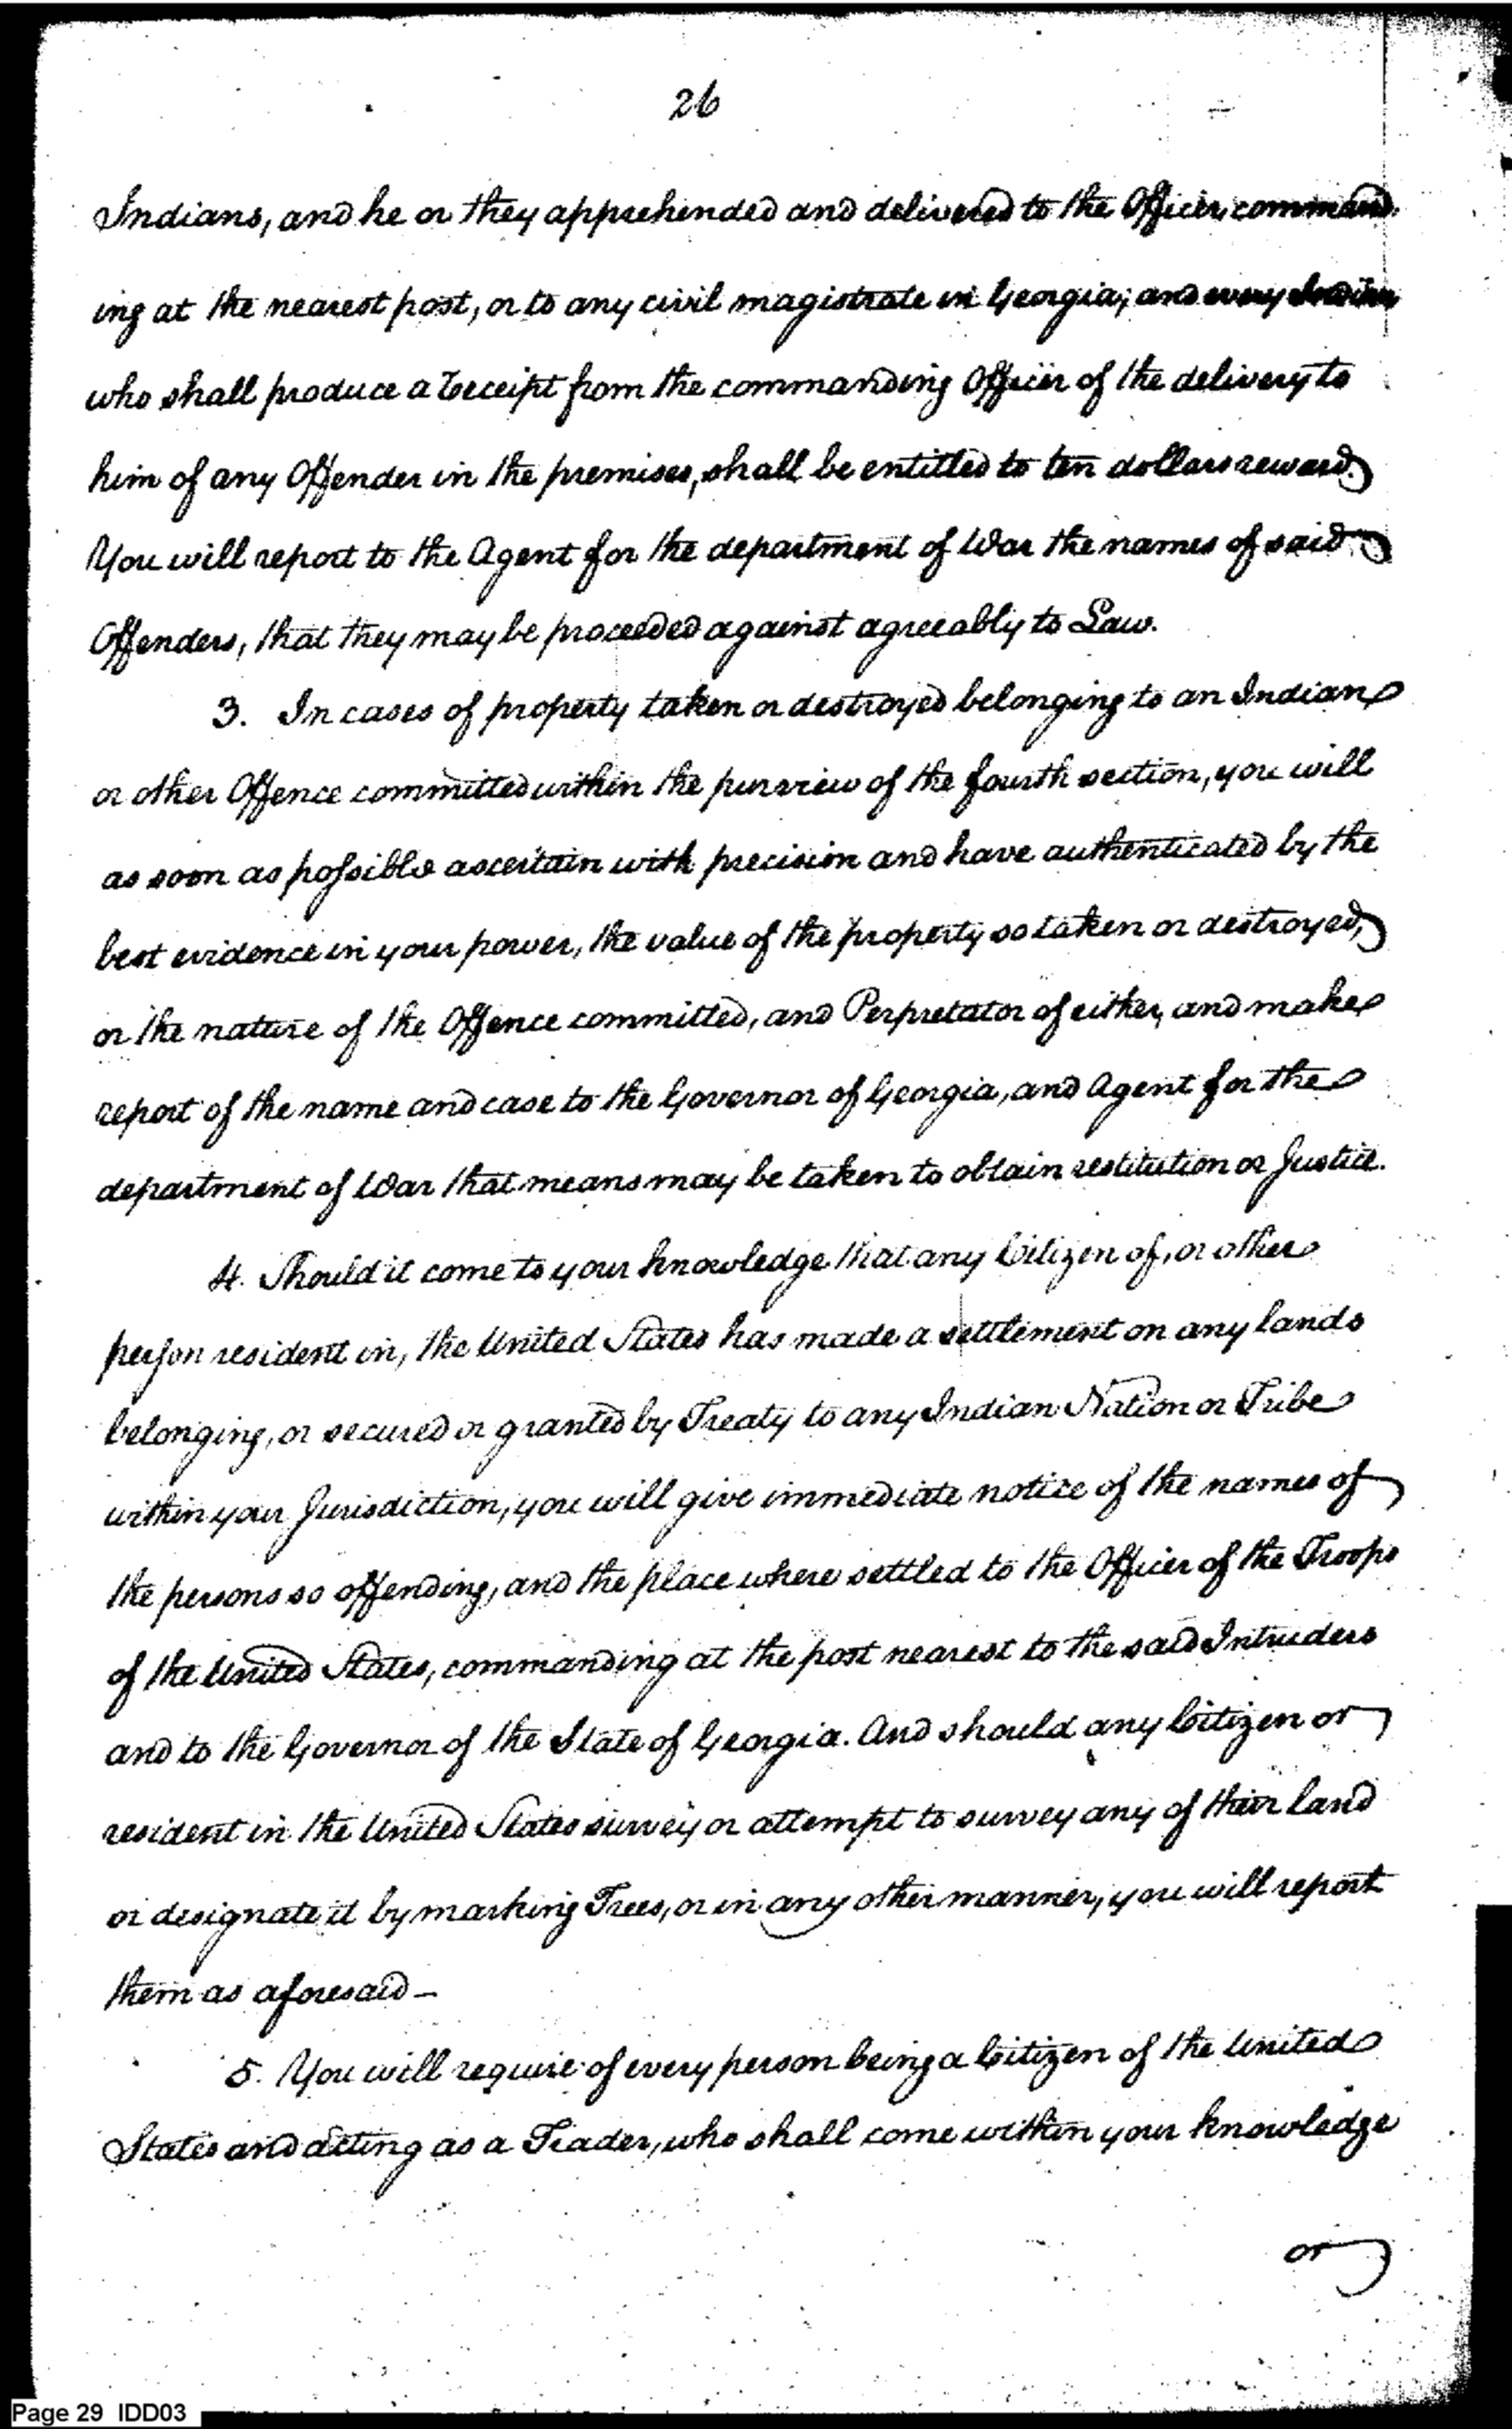 26
Indians, and he or they apprehended and delivered to the Officer command-
ing at the nearest post, or to any civil magistrate in Georgia; and every Indian
who shall produce a receipt from the commanding Officer of the delivery to
him of any Offender in the premises, shall be entitled to ten dollars reward.
You will report to the Agent for the department of War the names of said
Offenders, that they may be proceeded against agreeably to Law.
3. In cases of property taken or destroyed belonging to an Indian
or other Offence committed within the purview of the fourth section, you will
as soon as possible ascertain with precision and have authenticated by the
best evidence in your power, the value of the property so taken or destroyed,
or the nature of the Offence committed, and Perpretator of either, and make
report of the name and case to the Governor of Georgia, and Agent for the
department of War that means may be taken to obtain restitution or Justice.
4. Should it come to your knowledge that any Citizen of, or other
person resident in, the United States has made a settlement on any lands
belonging, or secured or granted by Treaty to any Indian Nation or Tribe
within your Jurisdiction, you will give immediate notice of the names of
the persons so offending, and the place where settled to the Officer of the Troops
of the United States, commanding at the post nearest to the said Intruders
and to the Governor of the State of Georgia. And should any Citizen or
resident in the United States survey or attempt to survey any of their land
or designate it by marking Trees, or in any other manner, you will report
them as aforesaid -
5. You will require of every person being a Citizen of the United
States and acting as a Trader, who shall come within your knowledge
or
Page 29 IDD03